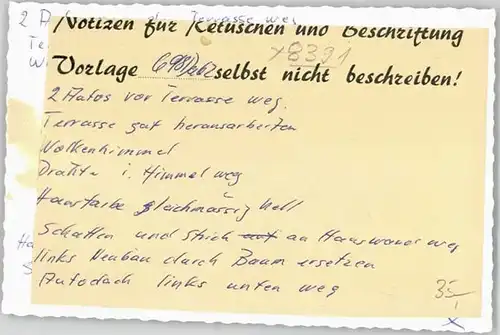 Notizen für Retuschen und Beschriftung
x8391
Vorlage selbst nicht beschreiben!
2 Autos vor Terrasse weg.
Terrasse gut herausarbeiten
Wolkenhimmel
Drähte i. Himmel weg
Hausfarbe gleichmässig hell
Schatten und Strich an Hauswand weg
links Neubau durch Baum ersetzen
Autodach links unten weg
35
x